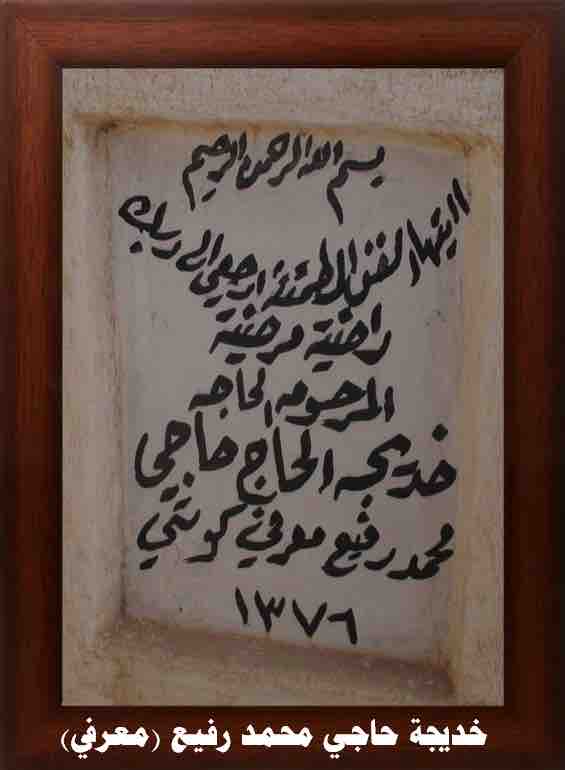 بسم الله الرحمن الرحيم
ايتها النفس المطمئنة ارجعي الى ربك
راضية مرضية
المرحومه الحاجه
خديجه الحاج حاجي
محمد رفيع معرفي كويتي
١٣٧٦
خديجة حاجي محمد رفيع (معرفي)